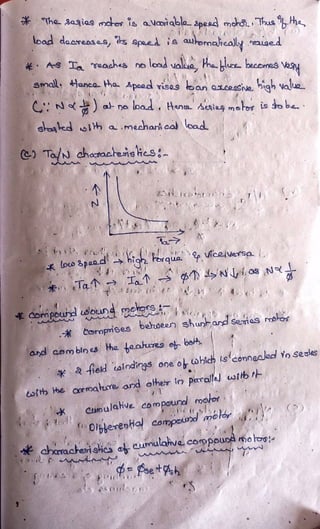 * The series motor is a variable speed motor. Thus if the
load decreases, its speed is automatically raised
* As Ia reaches no load value, the flux becomes very
small. Hence the speed rises to an excessive high value
(∵ N ∝ 1/ϕ) at no load. Hence series motor is to be
started with a mechanical load
(c) Ta/N characteristics:-
↑
N
Ta→
* low speed → high torque & vice versa
* Ta↑ → Ia↑ → ϕ↑ → N↓ as N ∝ 1/ϕ
* compound wound motors:-
* Comprises between shunt and series motor
and combines the features of both
* 2 field windings one of which is connected in series
with the armature and other in parallel with it
* Cumulative compound motor
Differential compound motor
* characteristics of cumulative compound motors:-
ϕ = ϕse + ϕsh